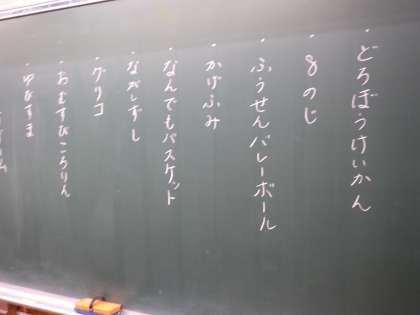 ・どろぼうけいかん
・8のじ
・ふうせんバレーボール
・かげふみ
・なんでもバスケット
・ながしずし
・グリコ
・おむすびころりん
・ゆびすま